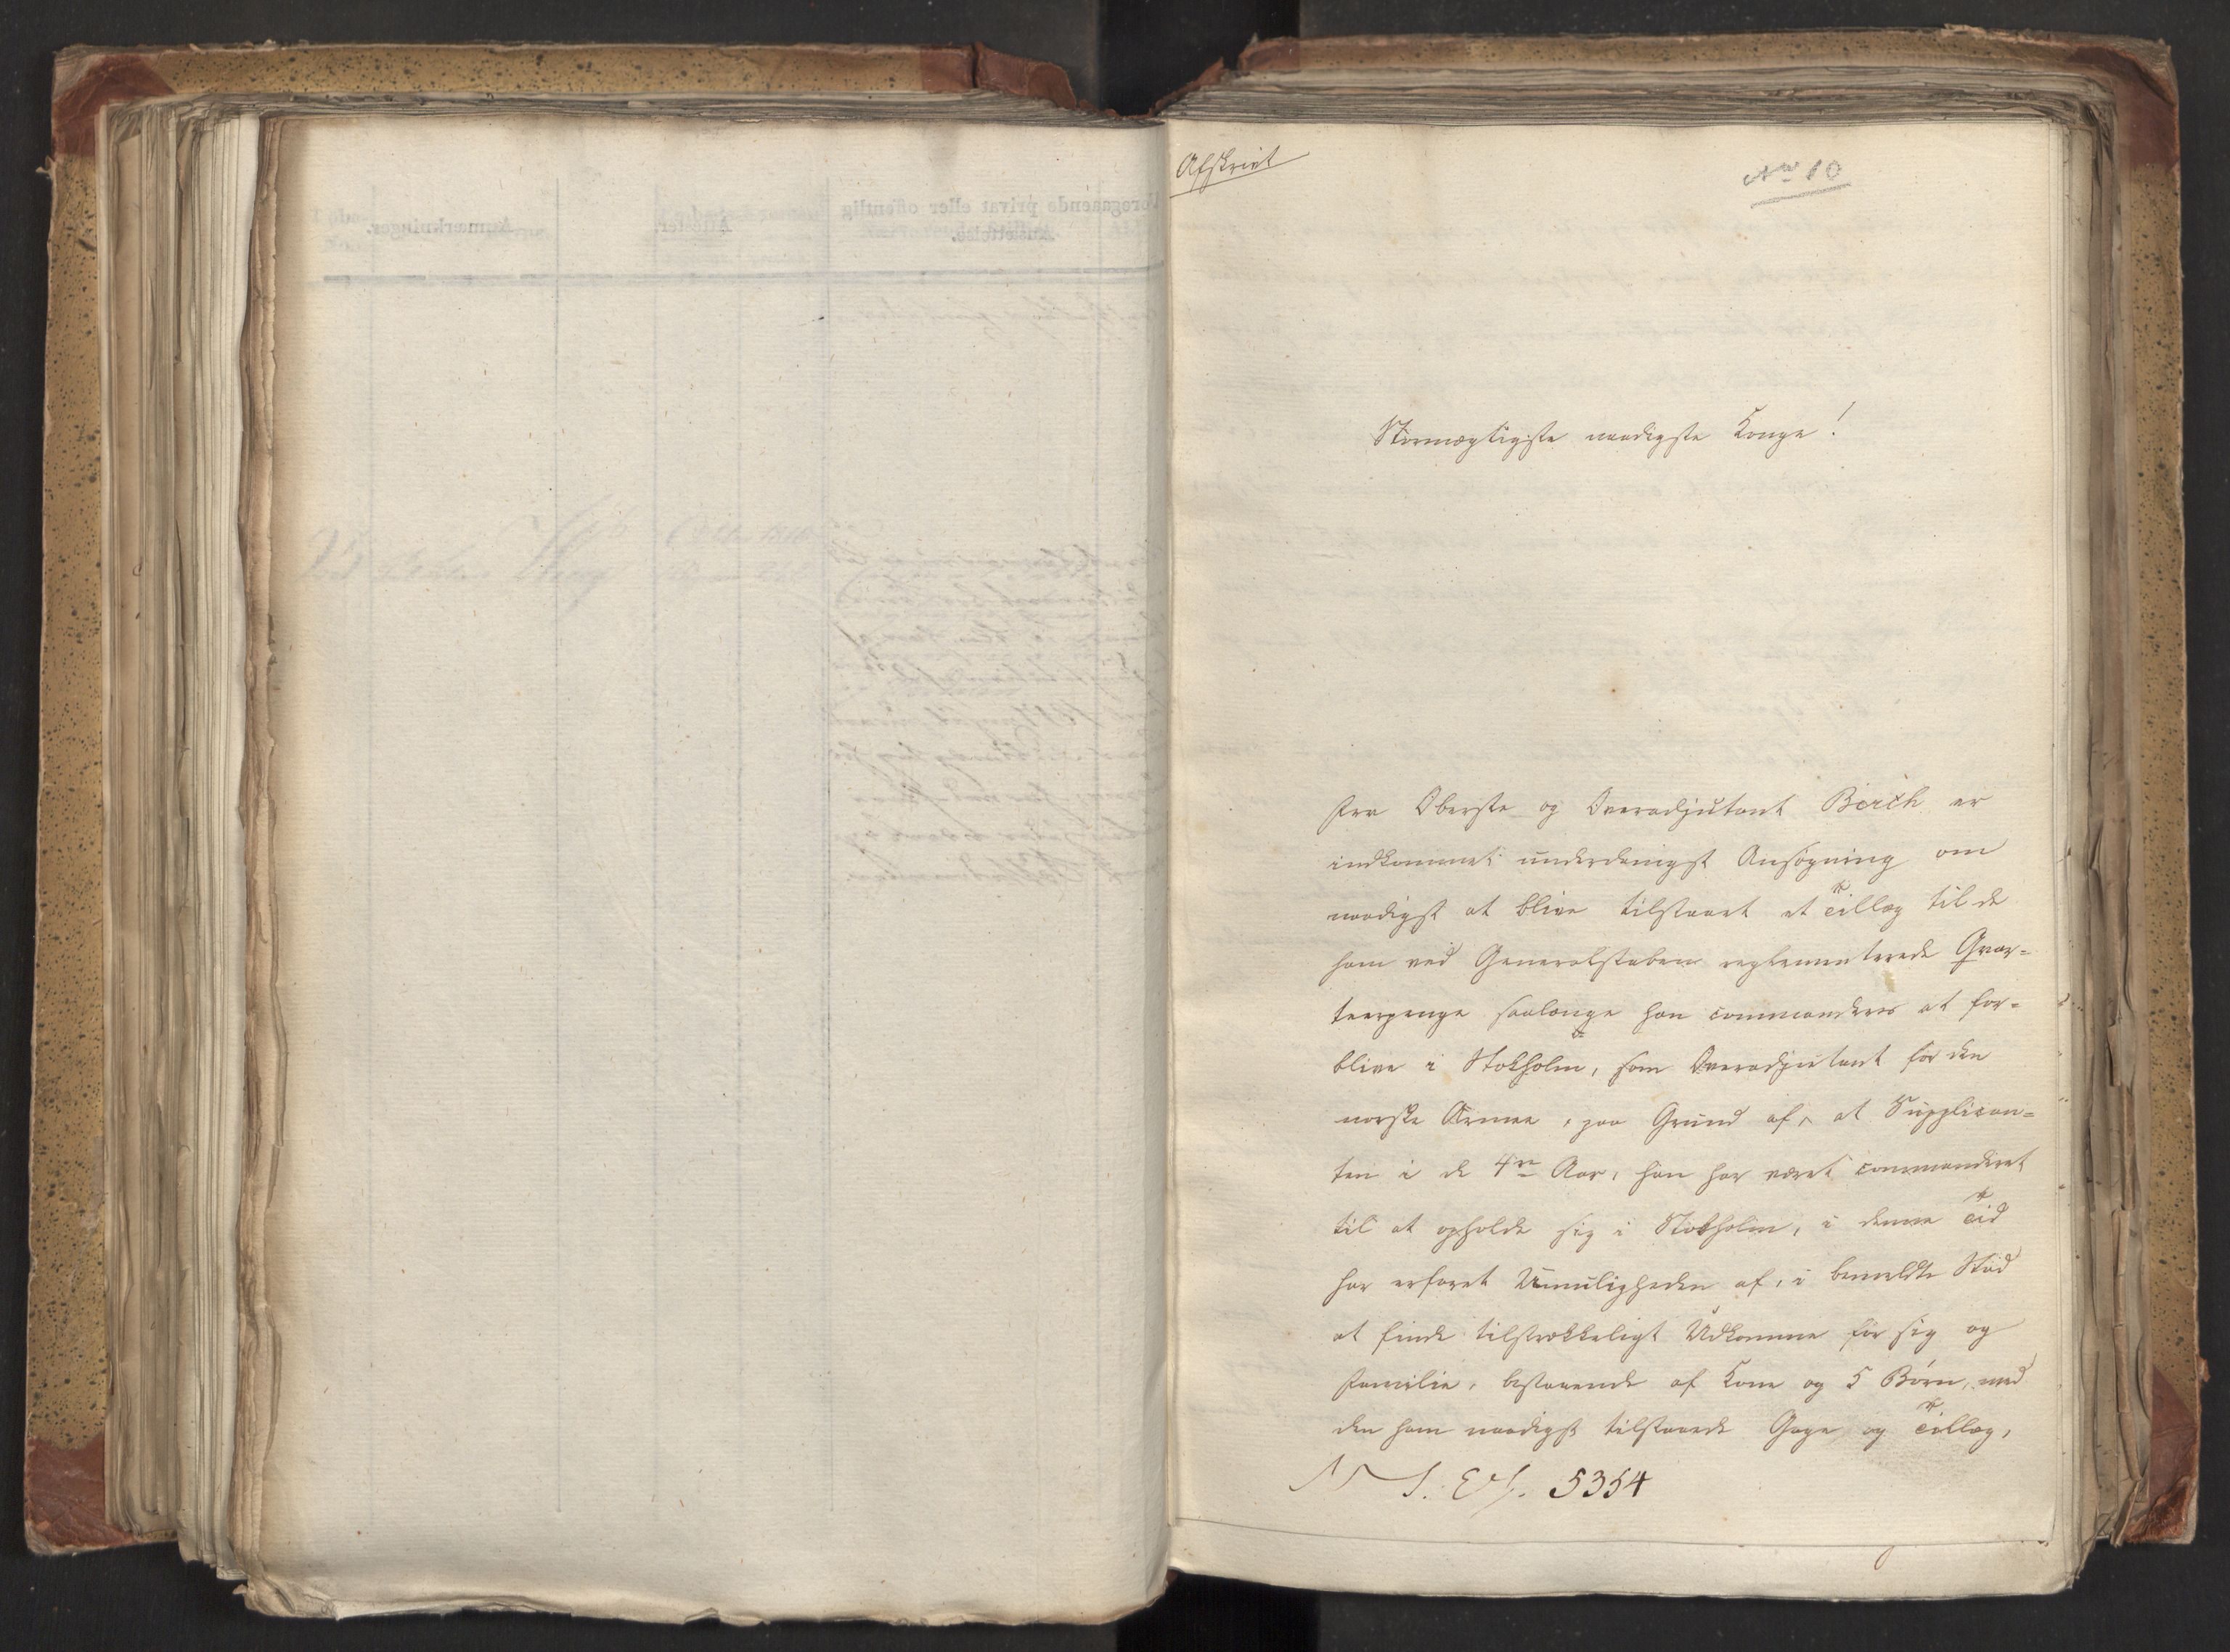 Afskrivt
No 10
Stormægtigste naadigste Konge!
Fra Oberste og Overadjutant Birch er
indkommet underdanigst Ansøgning om
naadigst at blive tilstaaet et Tillæg til de
ham ved Generalstaben reglementerede Qvar=
teerpenge saalænge han commanderes at for=
blive i Stokholm, som Overadjutant for den
norske Armee, paa Grund af, at Supplican=
ten i de 4re Aar, han har været commanderet
til at opholde sig i Stokholm, i denne Tid
har erfaret Umuligheden af, i bemeldte Stad
at finde tilstrækkeligt Udkomme for sig og
Familie, bestaaende af Kone og 5 Børn, med
den ham naadigst tilstaaede Gage og Tillæg,
5354